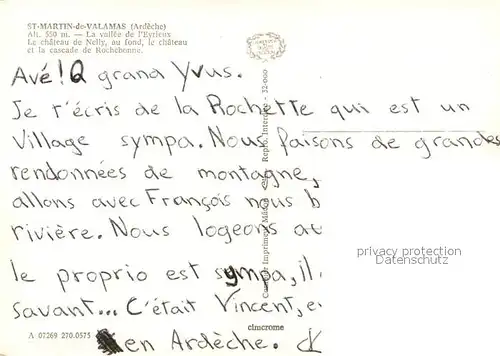 ST-MARTIN-de-VALAMAS (Ardèche)
Alt. 550 m. — La vallée de l'Eyrieux
Le château de Nelly, au fond, le château
et la cascade de Rochebonne.
Avé ! Q grand Yvus.
Je t'écris de la Rochette qui est un
Village sympa. Nous faisons de grandes
rendonnées de montagne,
allons avec François nous b
rivière. Nous logeons au
le proprio est sympa, il
savant... C'était Vincent, e
en Ardèche.
Imprimerie
Repro. Interdite - 12-000
privacy protection
Datenschutz
cimcrome
A 07269 270.0575